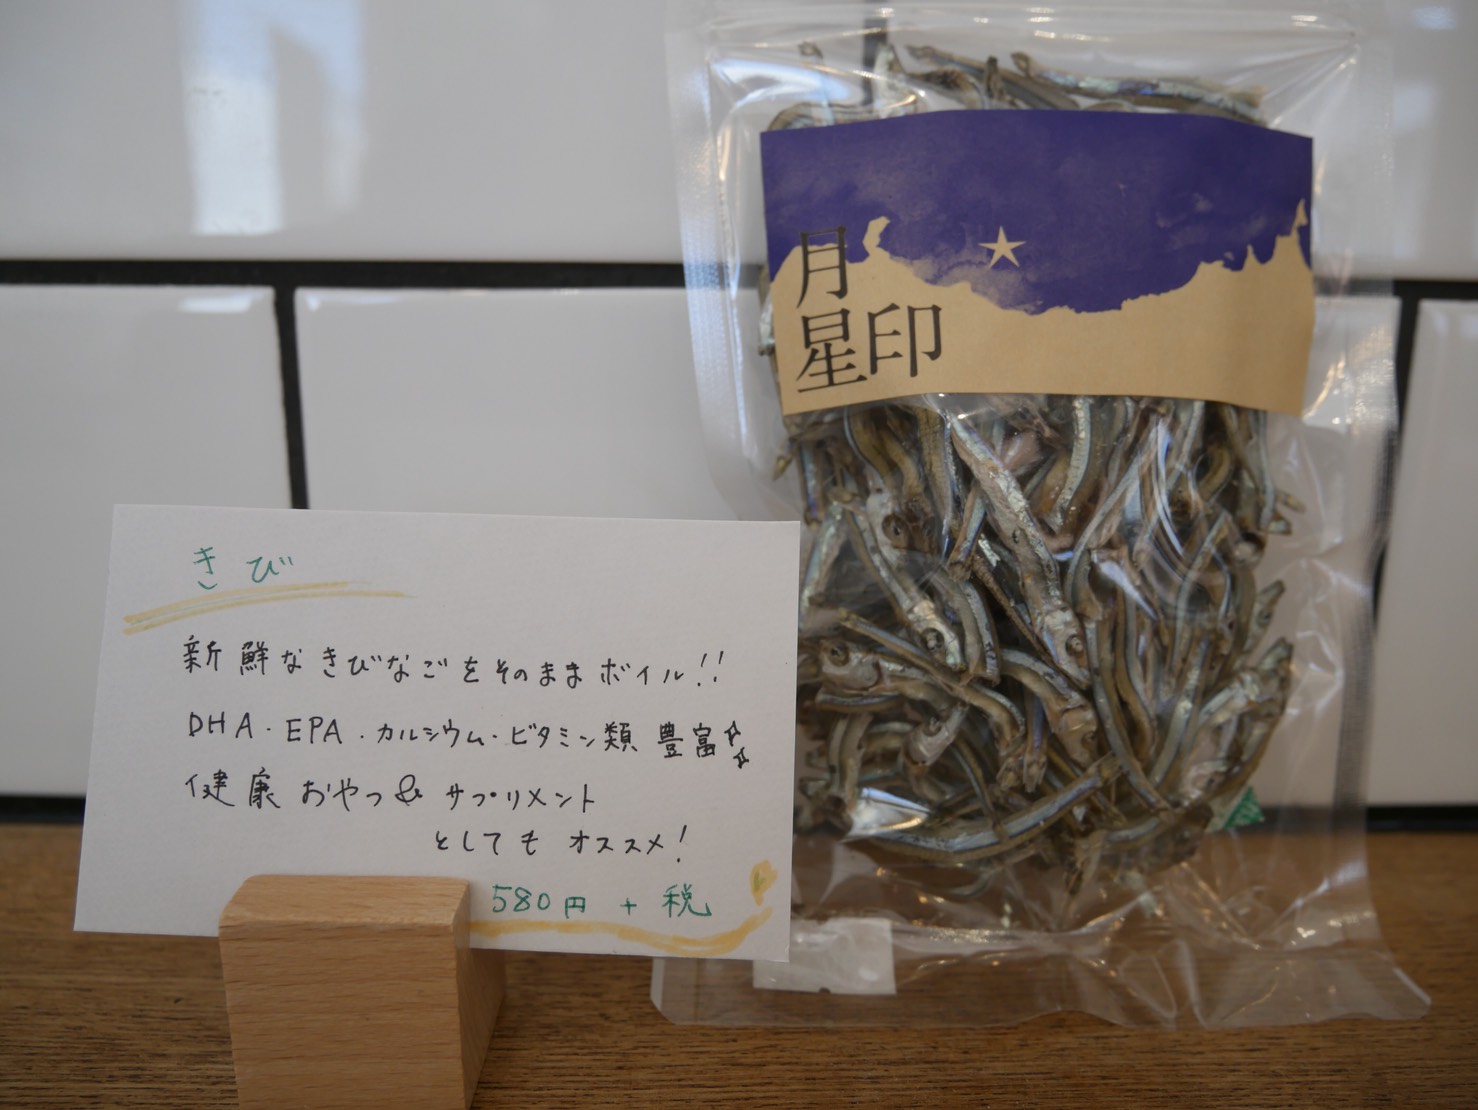 きび
新鮮なきびなごをそのままボイル!!
DHA・EPA・カルシウム・ビタミン類豊富
健康おやつ&サプリメント
としてもオススメ!
580円+税
月
星印